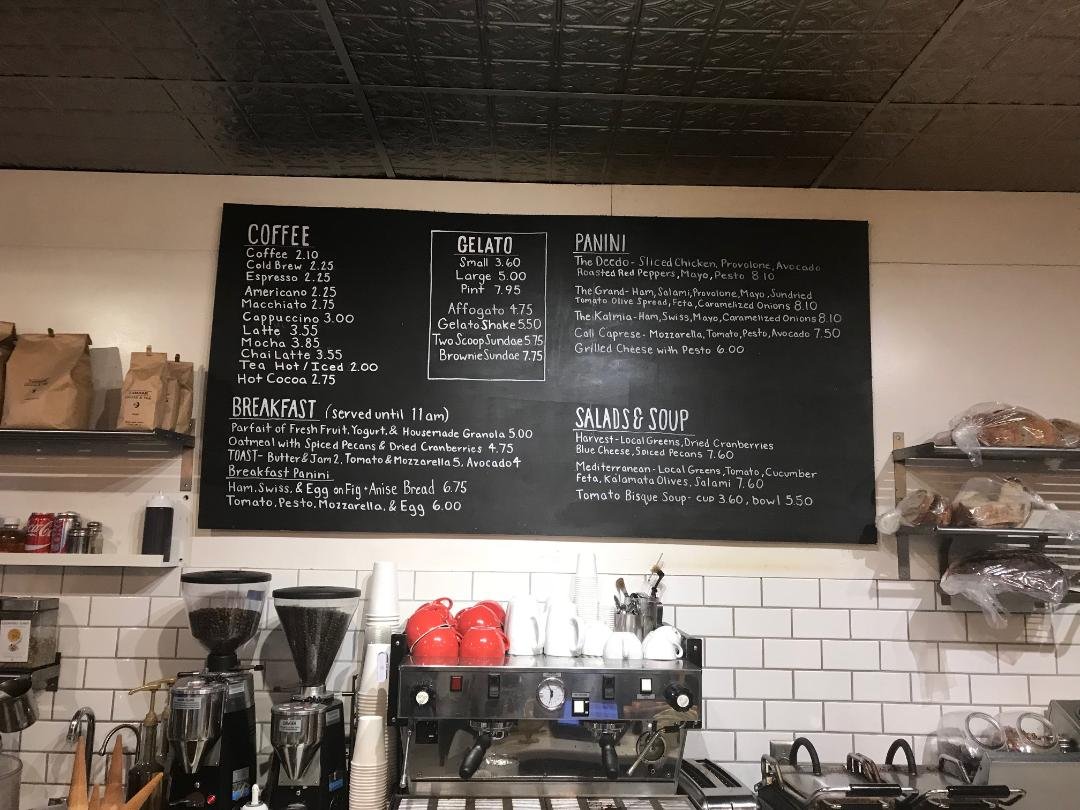 COFFEE
Coffee 2.10
Cold Brew 2.25
Espresso 2.25
Americano 2.25
Macchiato 2.75
Cappuccino 3.00
Latte 3.55
Mocha 3.85
Chai Latte 3.55
Tea Hot / Iced 2.00
Hot Cocoa 2.75
GELATO
Small 3.60
Large 5.00
Pint 7.95
Affogato 4.75
Gelato Shake 5.50
Two Scoop Sundae 5.75
Brownie Sundae 7.75
PANINI
The Deedo - Sliced Chicken, Provolone, Avocado
Roasted Red Peppers, Mayo, Pesto 8.10
The Grand - Ham, Salami, Provolone, Mayo, Sundried
Tomato Olive Spread, Feta, Caramelized Onions 8.10
The Kalmia - Ham, Swiss, Mayo, Caramelized Onions 8.10
Cali Caprese - Mozzarella, Tomato, Pesto, Avocado 7.50
Grilled Cheese with Pesto 6.00
BREAKFAST (served until 11am)
Parfait of Fresh Fruit, Yogurt, & Housemade Granola 5.00
Oatmeal with Spiced Pecans & Dried Cranberries 4.75
TOAST - Butter & Jam 2, Tomato & Mozzarella 5, Avocado 4
Breakfast Panini
Ham, Swiss, & Egg on Fig + Anise Bread 6.75
Tomato, Pesto, Mozzarella, & Egg 6.00
SALADS & SOUP
Harvest - Local Greens, Dried Cranberries
Blue Cheese, Spiced Pecans 7.60
Mediterranean - Local Greens, Tomato, Cucumber
Feta, Kalamata Olives, Salami 7.60
Tomato Bisque Soup - cup 3.60, bowl 5.50